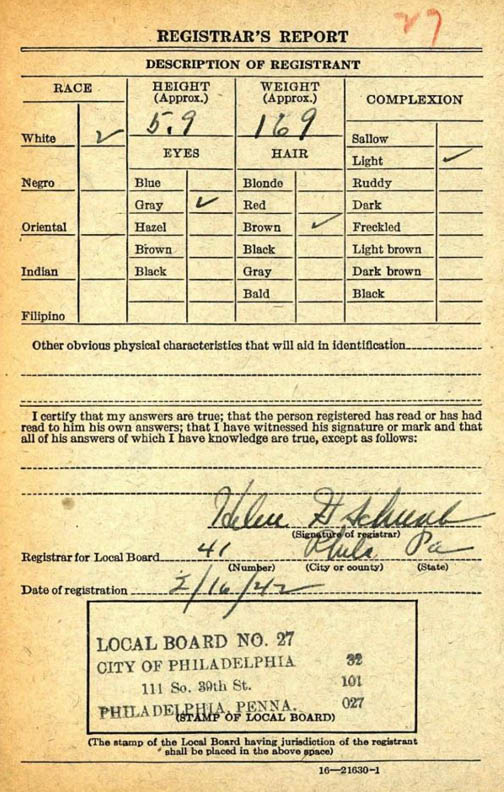 27
REGISTRAR'S REPORT
DESCRIPTION OF REGISTRANT
RACE
HEIGHT (Approx.)
WEIGHT (Approx.)
COMPLEXION
5.9
169
White ✓
EYES
HAIR
Sallow
Light ✓
Negro
Blue
Blonde
Ruddy
Gray ✓
Red
Dark
Oriental
Hazel
Brown ✓
Freckled
Brown
Black
Light brown
Indian
Black
Gray
Dark brown
Bald
Black
Filipino
Other obvious physical characteristics that will aid in identification
I certify that my answers are true; that the person registered has read or has had
read to him his own answers; that I have witnessed his signature or mark and that
all of his answers of which I have knowledge are true, except as follows:
Helen
(Signature of registrar)
Registrar for Local Board 41 Phila Pa
(Number) (City or county) (State)
Date of registration 2/16/42
LOCAL BOARD NO. 27
CITY OF PHILADELPHIA 32
111 So. 39th St. 101
PHILADELPHIA, PENNA. 027
(STAMP OF LOCAL BOARD)
(The stamp of the Local Board having jurisdiction of the registrant
shall be placed in the above space)
16—21630-1